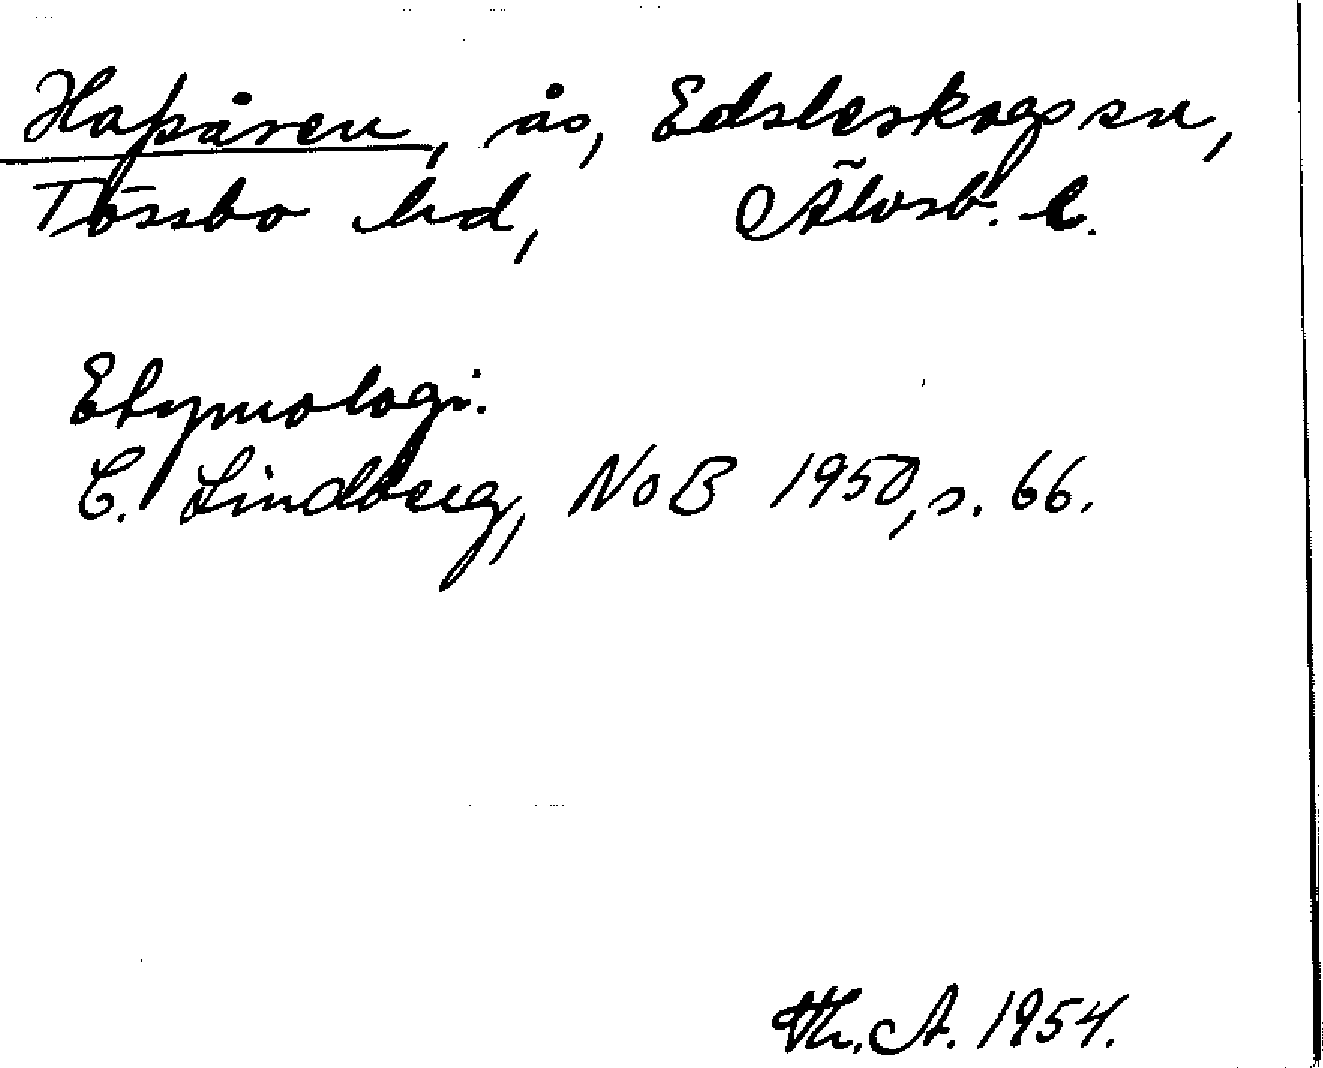 Hapåren, ås, Edsleskogs sn,
Tössbo hd, Älvsb. l.
Etymologi.
C. Lindberg, NoB 1950, s. 66.
Th. A. 1954.